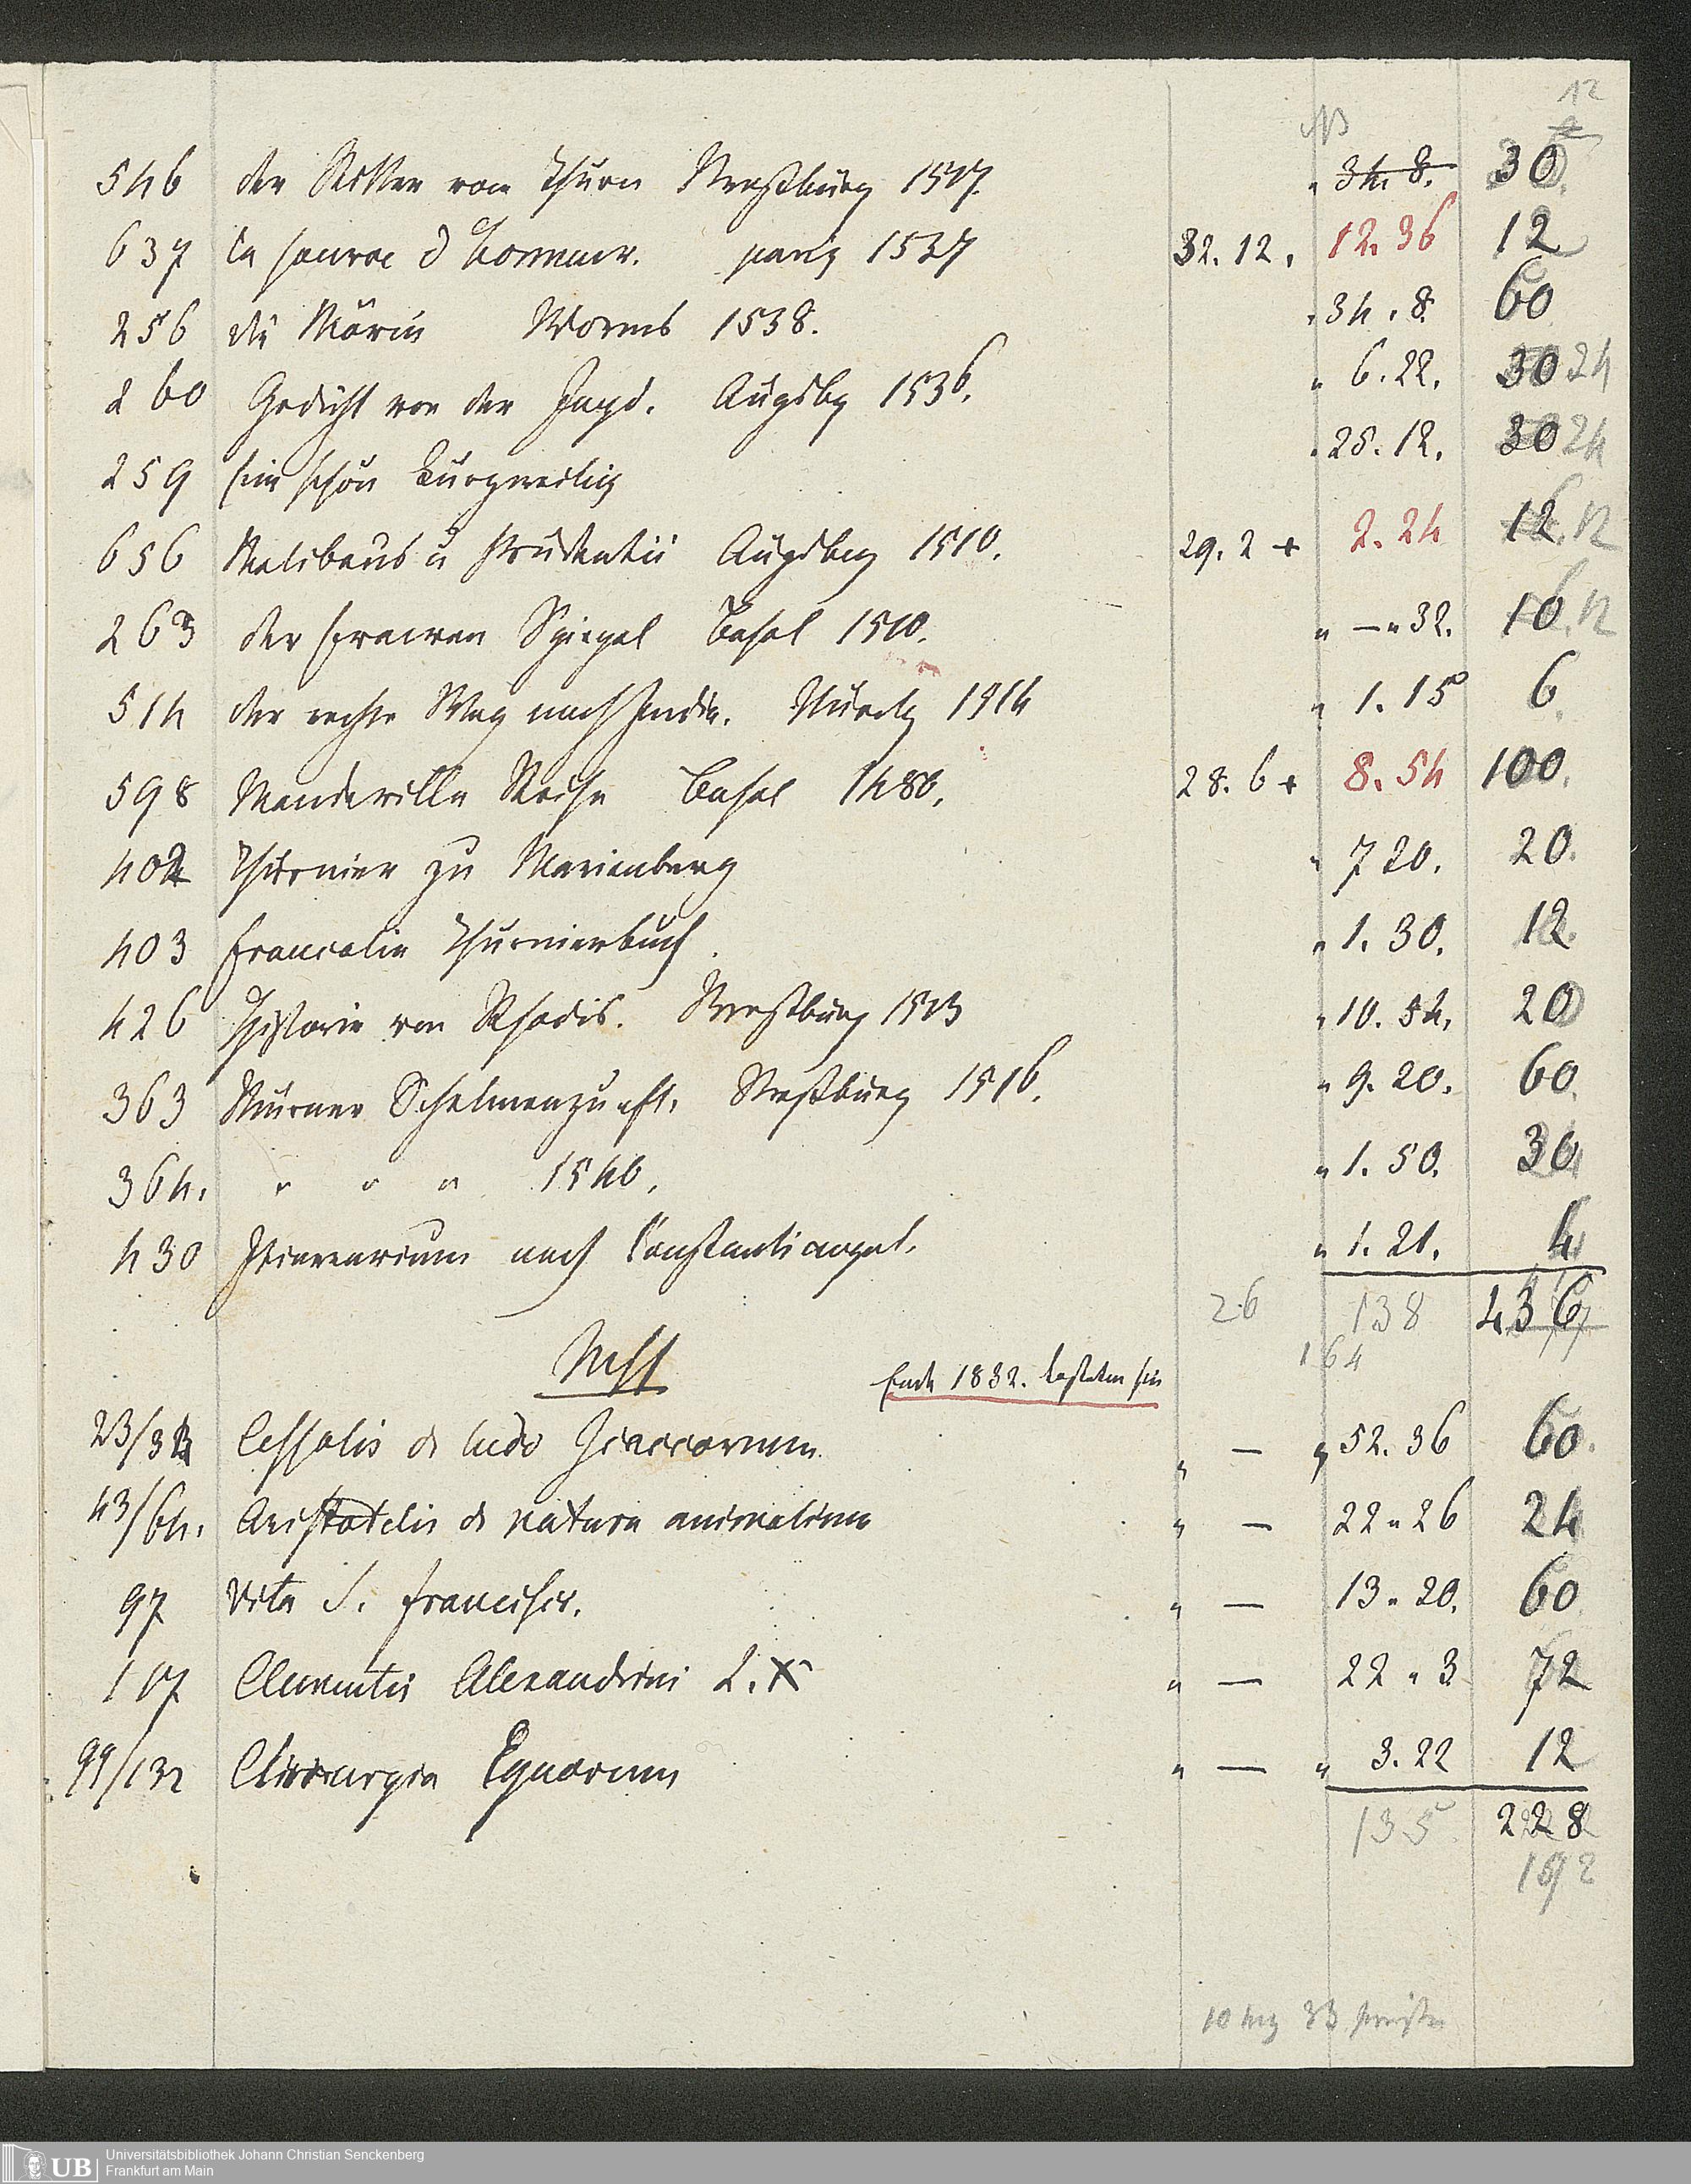 12
NB
546 der Ritter vom Thurn Straßburg 1517. " 34. 8. 30.
637 la source d'honneur. paris 1537 32. 12. 12. 36 12
256 die Mörin Worms 1538. " 34. 8. 60
260 Gedicht von der Jagd. Augsbg 1536. " 6. 22. 30 24
259 Ein schön Kurzweilig " 25. 12. 30 24
656 Melibeus u Prudentii Augsbg 1510. 29. 2 + 2. 24 12. 12
263 der Frawen Spiegel Basel 1510. " — " 32. 10. 12
514 der rechte Weg nach India. Nürnbg 1514 " 1. 15 6.
598 Mandeville Reise Basel 1480. 28. 6 + 8. 54 100.
402 Thurnier zu Marienberg " 7 20. 20.
403 Francolin Thurnierbuch. " 1. 30. 12.
426 Historie von Rhodis. Straßburg 1513 " 10. 54. 20
363 Murner Schelmenzunft. Straßburg 1516. " 9. 20. 60.
364. " " " 1540. " 1. 50. 30
430 Itinerarium nach Constantinopel. " 1. 21. 4
26 138 436
164
Mst
Ende 1832. kosteten sie
23/32 Cessolis de ludo Scaccorum. " — " 52. 36 60.
43/64. Aristotelis de natura animalium " — 22 " 26 24
97 Vita S. Francisci. " — 13 " 20. 60
107 Clementis Alexandrini L. X " — 22 " 3 72
99/132 Chirurgia Equorum " — " 3. 22 12
135 228
192
10 33
Universitätsbibliothek Johann Christian Senckenberg
Frankfurt am Main
UB